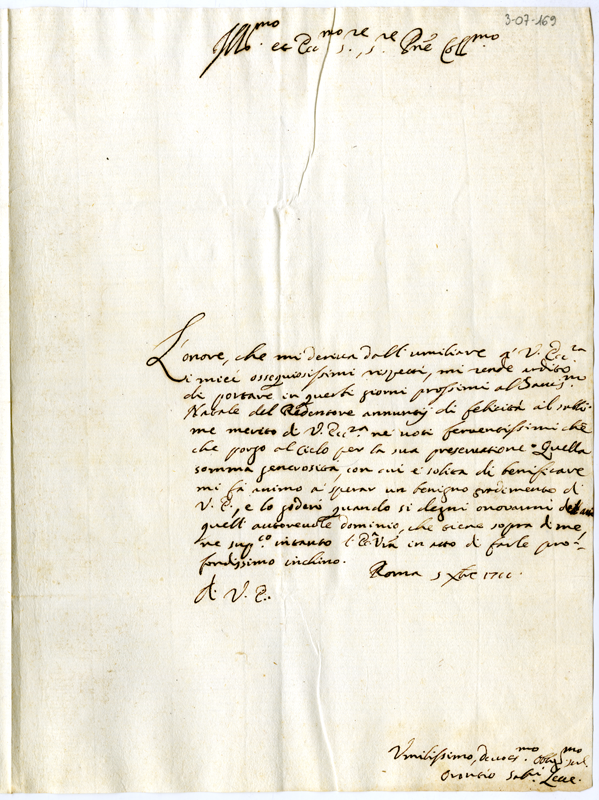 3-07-169
Ill.mo et Ecc.mo S.re, S.re Pne Coll.mo
L'onore, che mi deriva dall'umiliare à V. Ecc.za
i miei ossequiosissimi rispetti, mi rende ardito
di portare in questi giorni prossimi al Santiss.mo
Natale del Redentore annuntij di felicità al subli-
me merito di V. Ecc.za ne voti ferventissimi che
che porgo al Cielo per la sua preservatione. Quella
somma generosità, con cui è solita di beneficare
mi fà animo à sperar un benigno gradimento di
V. E., e lo goderò quando si degni onorarmi
quell'autorevole dominio, che tiene sopra di me,
ne sup.co intanto l'E. V.ra in atto di farle pro-
fondissimo inchino.
Roma 5 Xbre 1711.
Di V. E.
Umilissimo, devotis.mo Obblig.mo
Oronzio